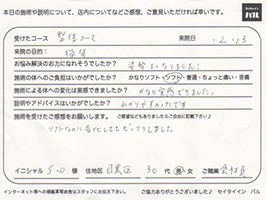 本日の施術や説明について、店内についてなどご感想、ご意見いただければ幸いです。
パル
受けたコース 整体コース 来院日 ・2・13
来院の目的:
お悩み解決のお力になれそうでしたか?
施術の体へのご負担はいかがでしたか? かなりソフト・ソフト・普通・ちょっと痛い・苦痛
施術による体への変化は実感できましたか? かなり実感できました。
説明やアドバイスはいかがでしたか? わかりやすかったです
施術を受けたご感想をお願いします。 ご要望などもありましたらご自由に記載下さい♪
ソフトなのに変化してビックリしました
イニシャル S.O 様 住地区 目黒区 30 代 男・女 ご職業 会社員
インターネット等への掲載不可の方はスタッフにお伝え下さい。 ご協力ありがとうございました♪ セイタイイン パル